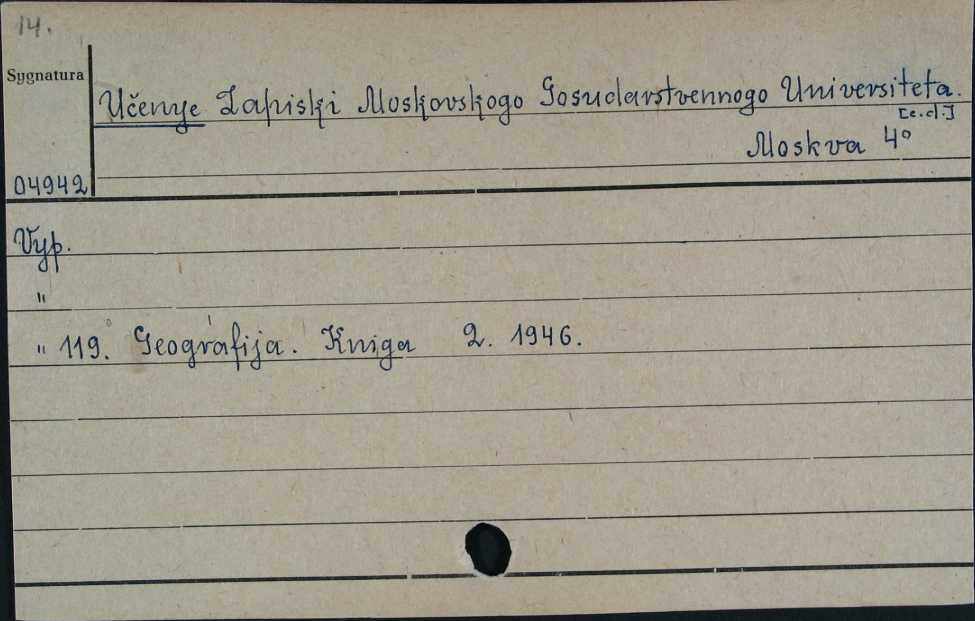 14.
Sygnatura
Učenye Zapiski Moskovskogo Gosudarstvennogo Universiteta.
[e.d.]
Moskva 4°
04942
Vyp.
"
" 119. Geografija. Kniga 2. 1946.